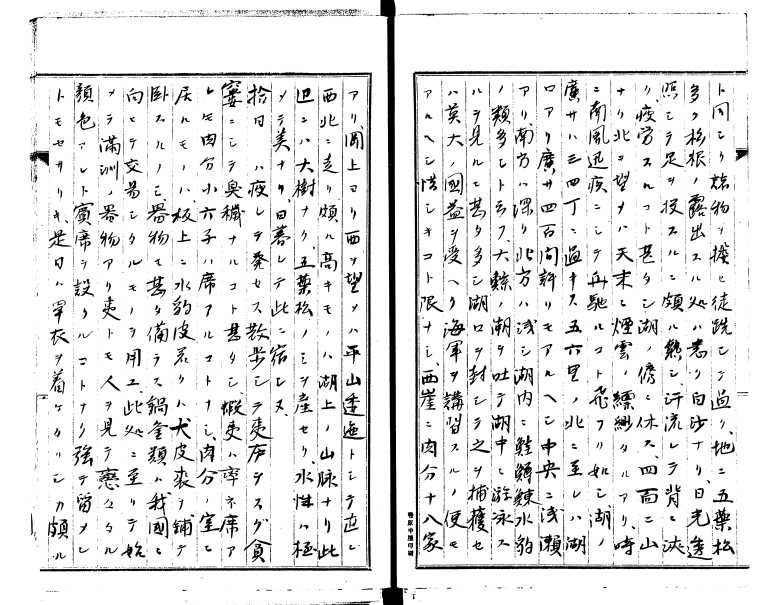 ト同シク旅物ヲ擔ヒ徒跣シテ過ク地ニ五葉松
多ク松根ノ露出スル処ハ悉ク白沙ナリ日光遠
照シテ足ヲ投スルニ頗ル熱シ汗流レテ背ニ浹
ク疲労スルコト甚タシ湖ノ傍ニ休ス四面ニ山
ナリ北ヲ望メハ天末ニ煙雲ノ縹緲タルアリ時
ニ南風迅疾ニシテ舟馳ルコト飛フカ如シ湖ノ
廣サハ三四丁ニ過キス五六里ノ北ニ至レハ湖
口アリ廣サ四百間許リモアルヘシ中央ニ浅瀬
アリ南方ハ深ク北方ハ浅シ湖内ニ鮭鱒鰊水豹
ノ類多シト云フ大鯨ノ潮ヲ吐テ湖中ニ游泳ス
ルヲ見ルニ甚タ多シ湖口ヲ封シテ之ヲ捕獲セ
ハ莫大ノ國益ヲ受ヘク海軍ヲ講習スルノ便モ
アルヘシ惜シキコト限ナシ西崖ニ内分十八家
アリ岡上ヨリ西ヲ望メハ平山透迤トシテ直ニ
西北ニ走リ頗ル高キモノハ湖上ノ山脉ナリ此
旦ニハ大樹ナク五葉松ノミヲ産セリ水性ハ極
メテ美ナリ日暮レテ此ニ宿シヌ
拾日ハ疲レテ発セス数歩シテ夷廬ヲスグ貪
窶ニシテ臭穢ナルコト甚タシ蝦夷ハ率ネ席ア
レモ内分小六子ハ席アルコトナシ内分ノ室ニ
居ルモノハ板上ニ水豹皮若クハ犬皮衾ヲ鋪テ
卧スルノミ器物モ甚タ備ラス鍋釜類ハ我國ニ
向ヒテ交易シタルモノヲ用エ此処ニ至リテ始
メテ滿洲ノ器物アリ夷トモ人ヲ見テ悪々タル
顔色アレト賓席ヲ設クルコトナク強テ留メン
トモセサリキ是日ハ單衣ヲ着ケタリシカ頗ル